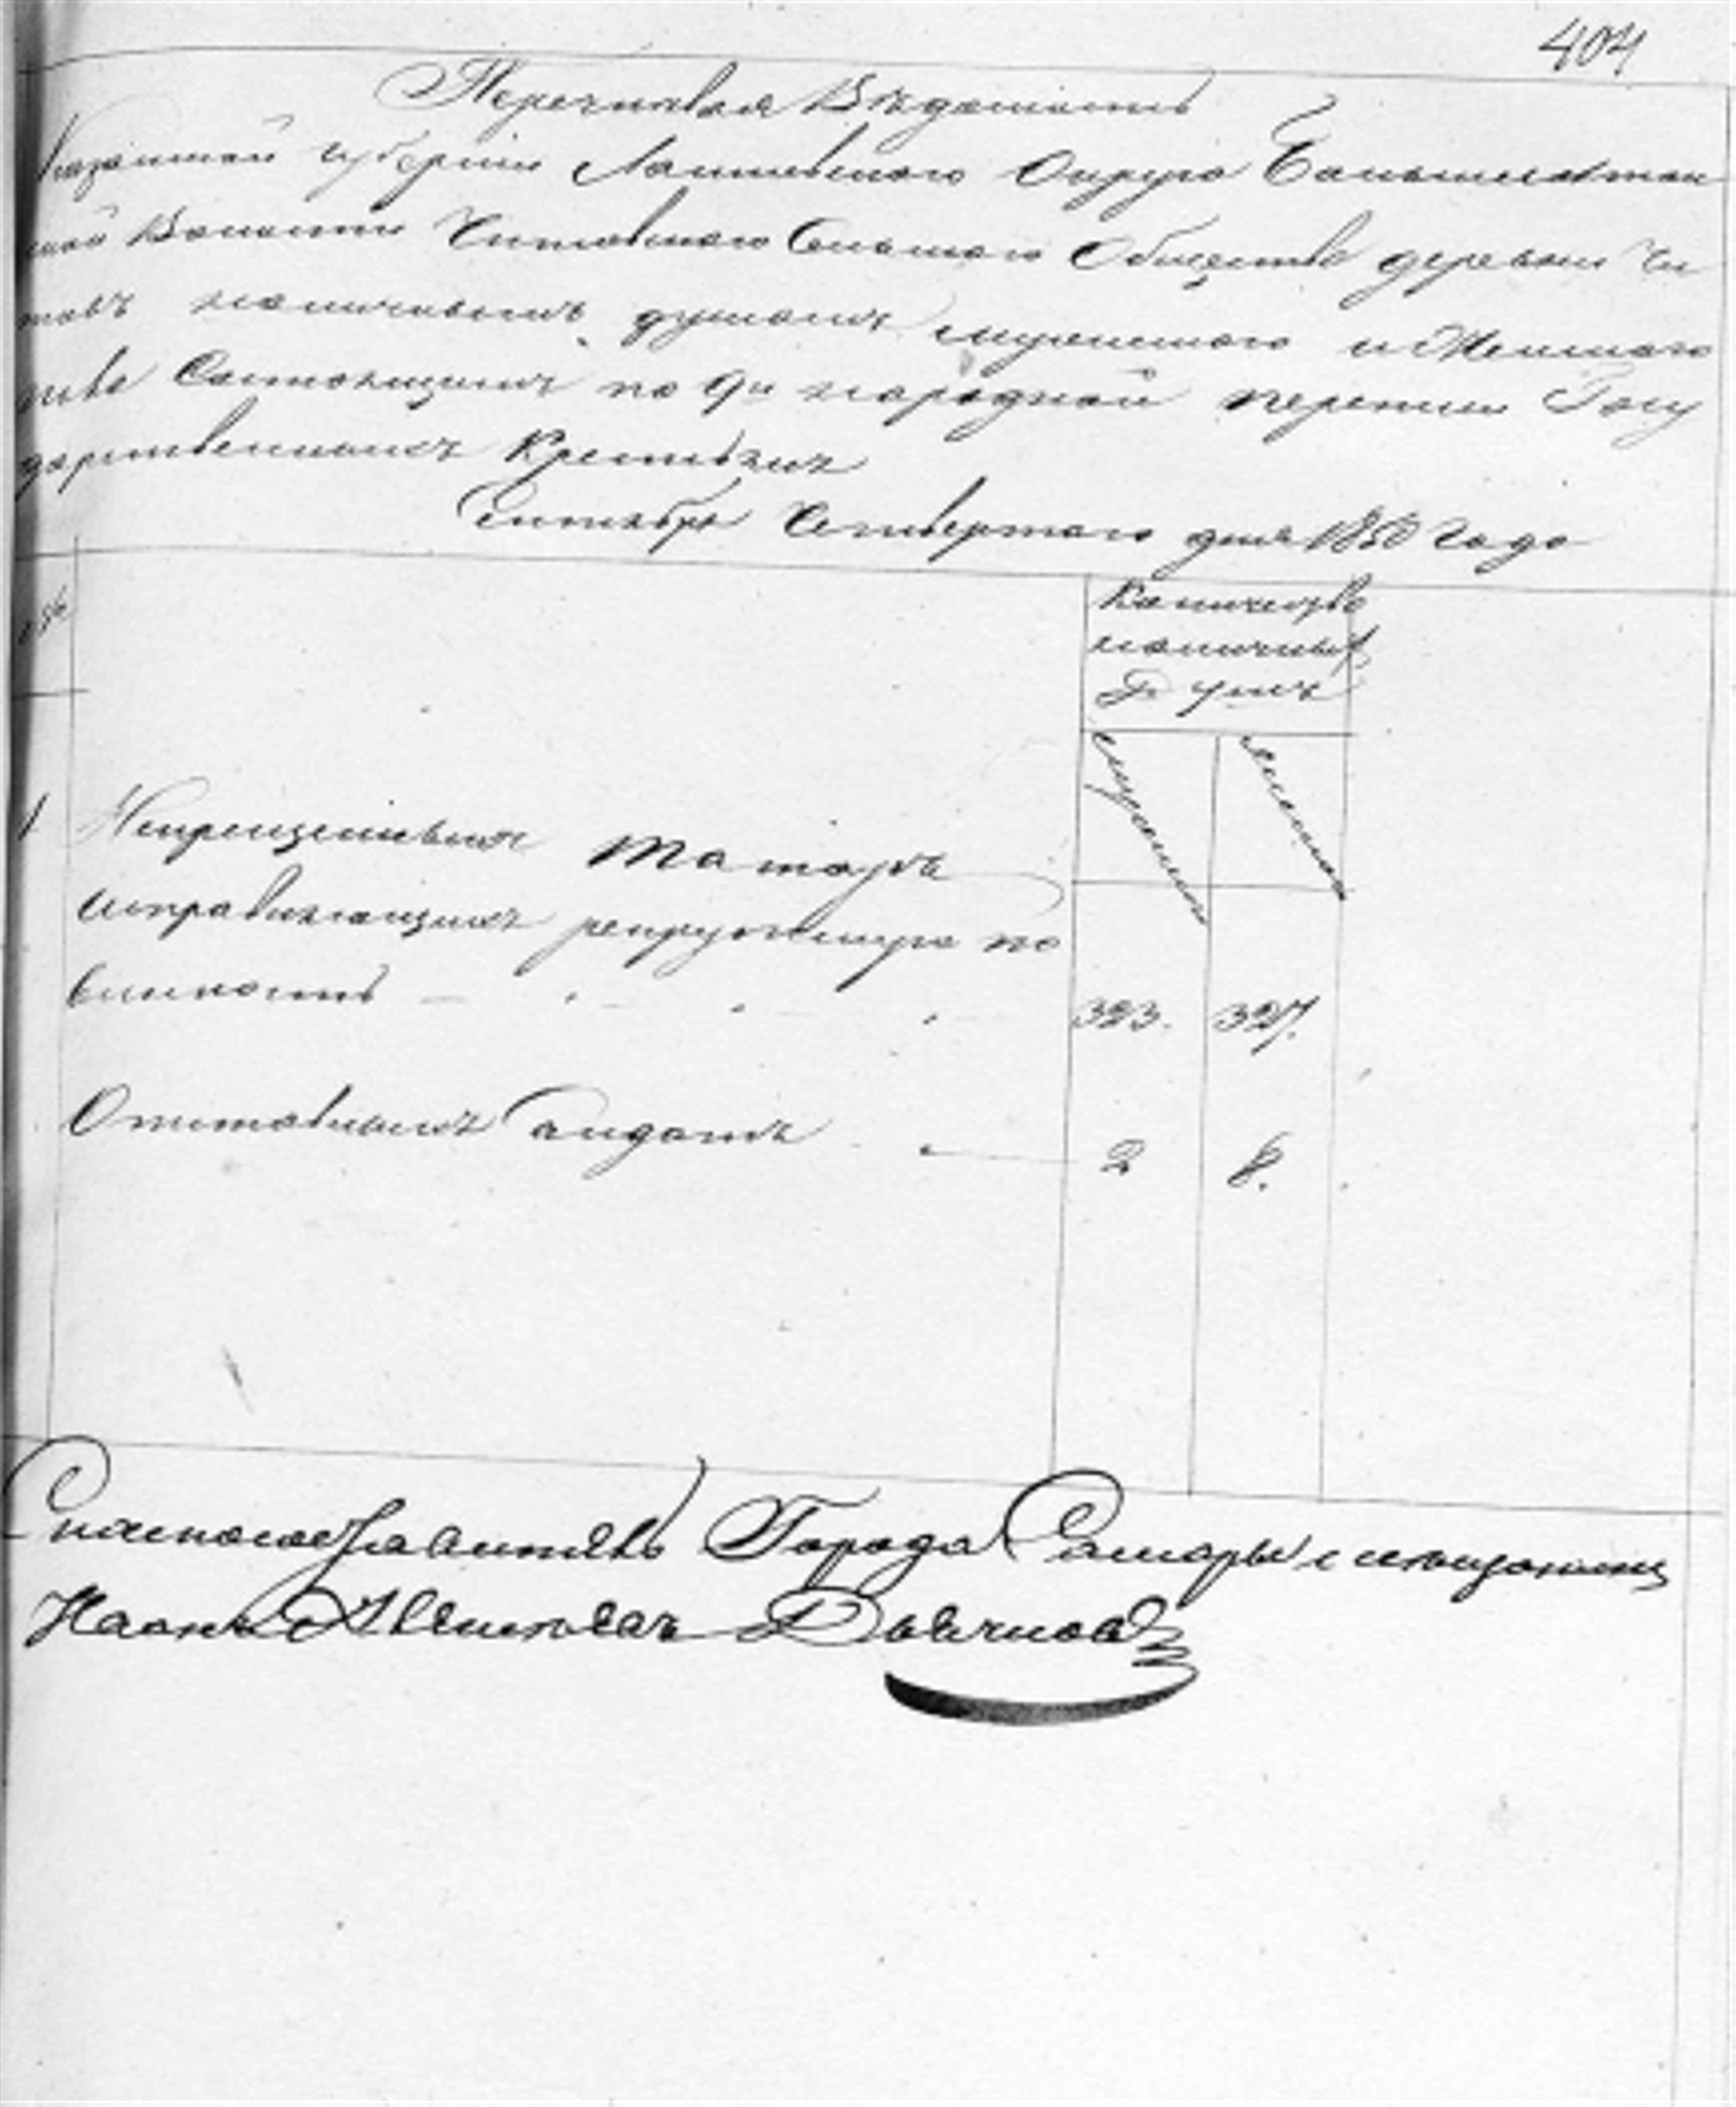 404
Перечневая Вѣдомость
Казанской губернии Лаишевскаго Округа
ской Волости Читовскаго Сельскаго Общества деревни Чи
товъ наличнымъ душамъ мужескаго и Женскаго
пола Состоящимъ по 9й народной переписи Госу
дарственныхъ Крестьянъ
Сентября Четвертаго дня 1850 Года
№
Количество
наличныхъ
Душъ
мужескаго
женскаго
1 Некрещеныхъ Татаръ
исправляющихъ рекрутскую по
винность 323. 327.
Отставныхъ Солдатъ 2 8.
Города Самары